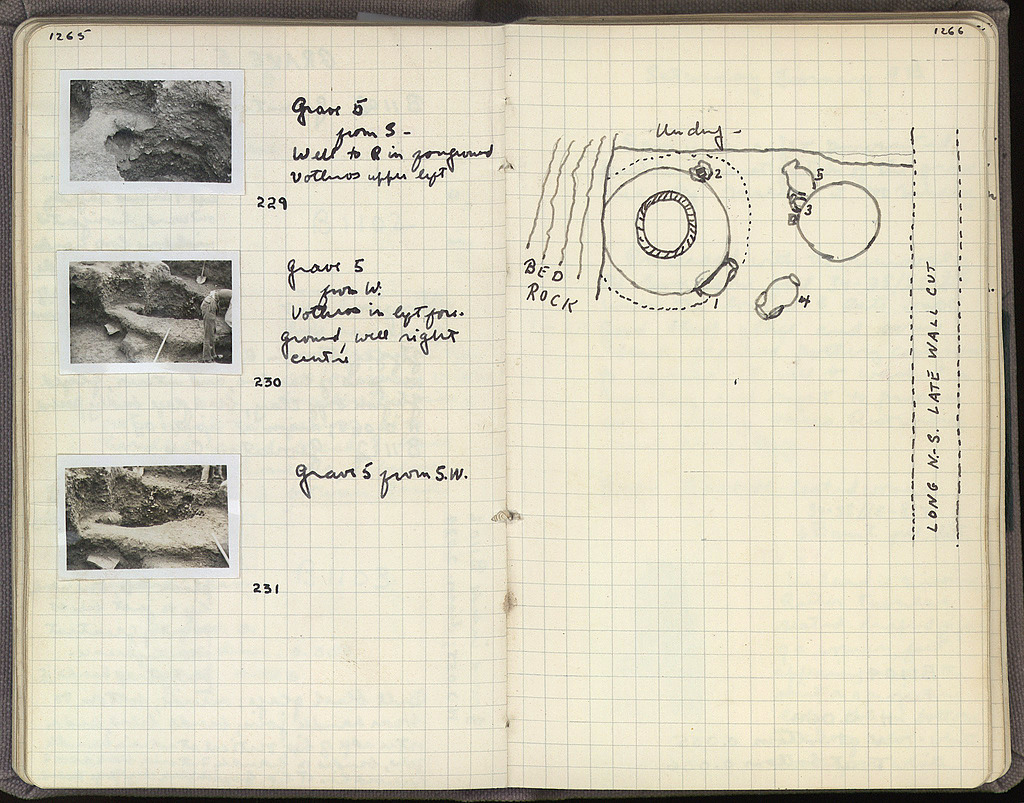 1265
Grave 5
from S -
Well to R in foreground
Vothros upper left
229
Grave 5
from W.
Vothros in left fore-
ground, well right
centre
230
Grave 5 from S.W.
231
1266
Undug -
2
5
3
1
4
BED
ROCK
LONG N.-S. LATE WALL CUT